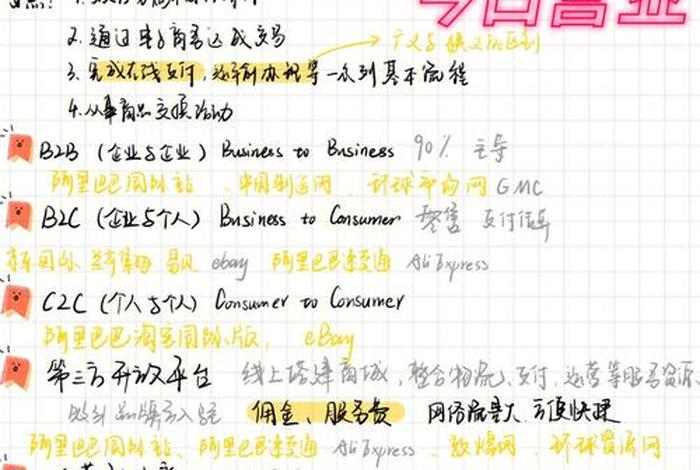 今日营业
2.通过电子商务达成交易
广义与狭义的区别
3.完成在线支付,运输办理等一众列基本流程
4.从事商品交换活动
B2B (企业与企业) Business to Business 90% 主导
阿里巴巴国际站、中国制造网、环球市场网 GMC
B2C (企业与个人) Business to Consumer 零售 支付信用
ebay 阿里巴巴速卖通 AliExpress
C2C (个人与个人) Consumer to Consumer
阿里巴巴淘宝国际版, eBay
第三方开放平台 线上搭建商城,整合物流、支付、运营等服务资源
吸引品牌引入 佣金、服务费 网络流量大 方便快捷
阿里巴巴国际站、阿里巴巴速卖通 AliExpress、敦煌网、环球资源网